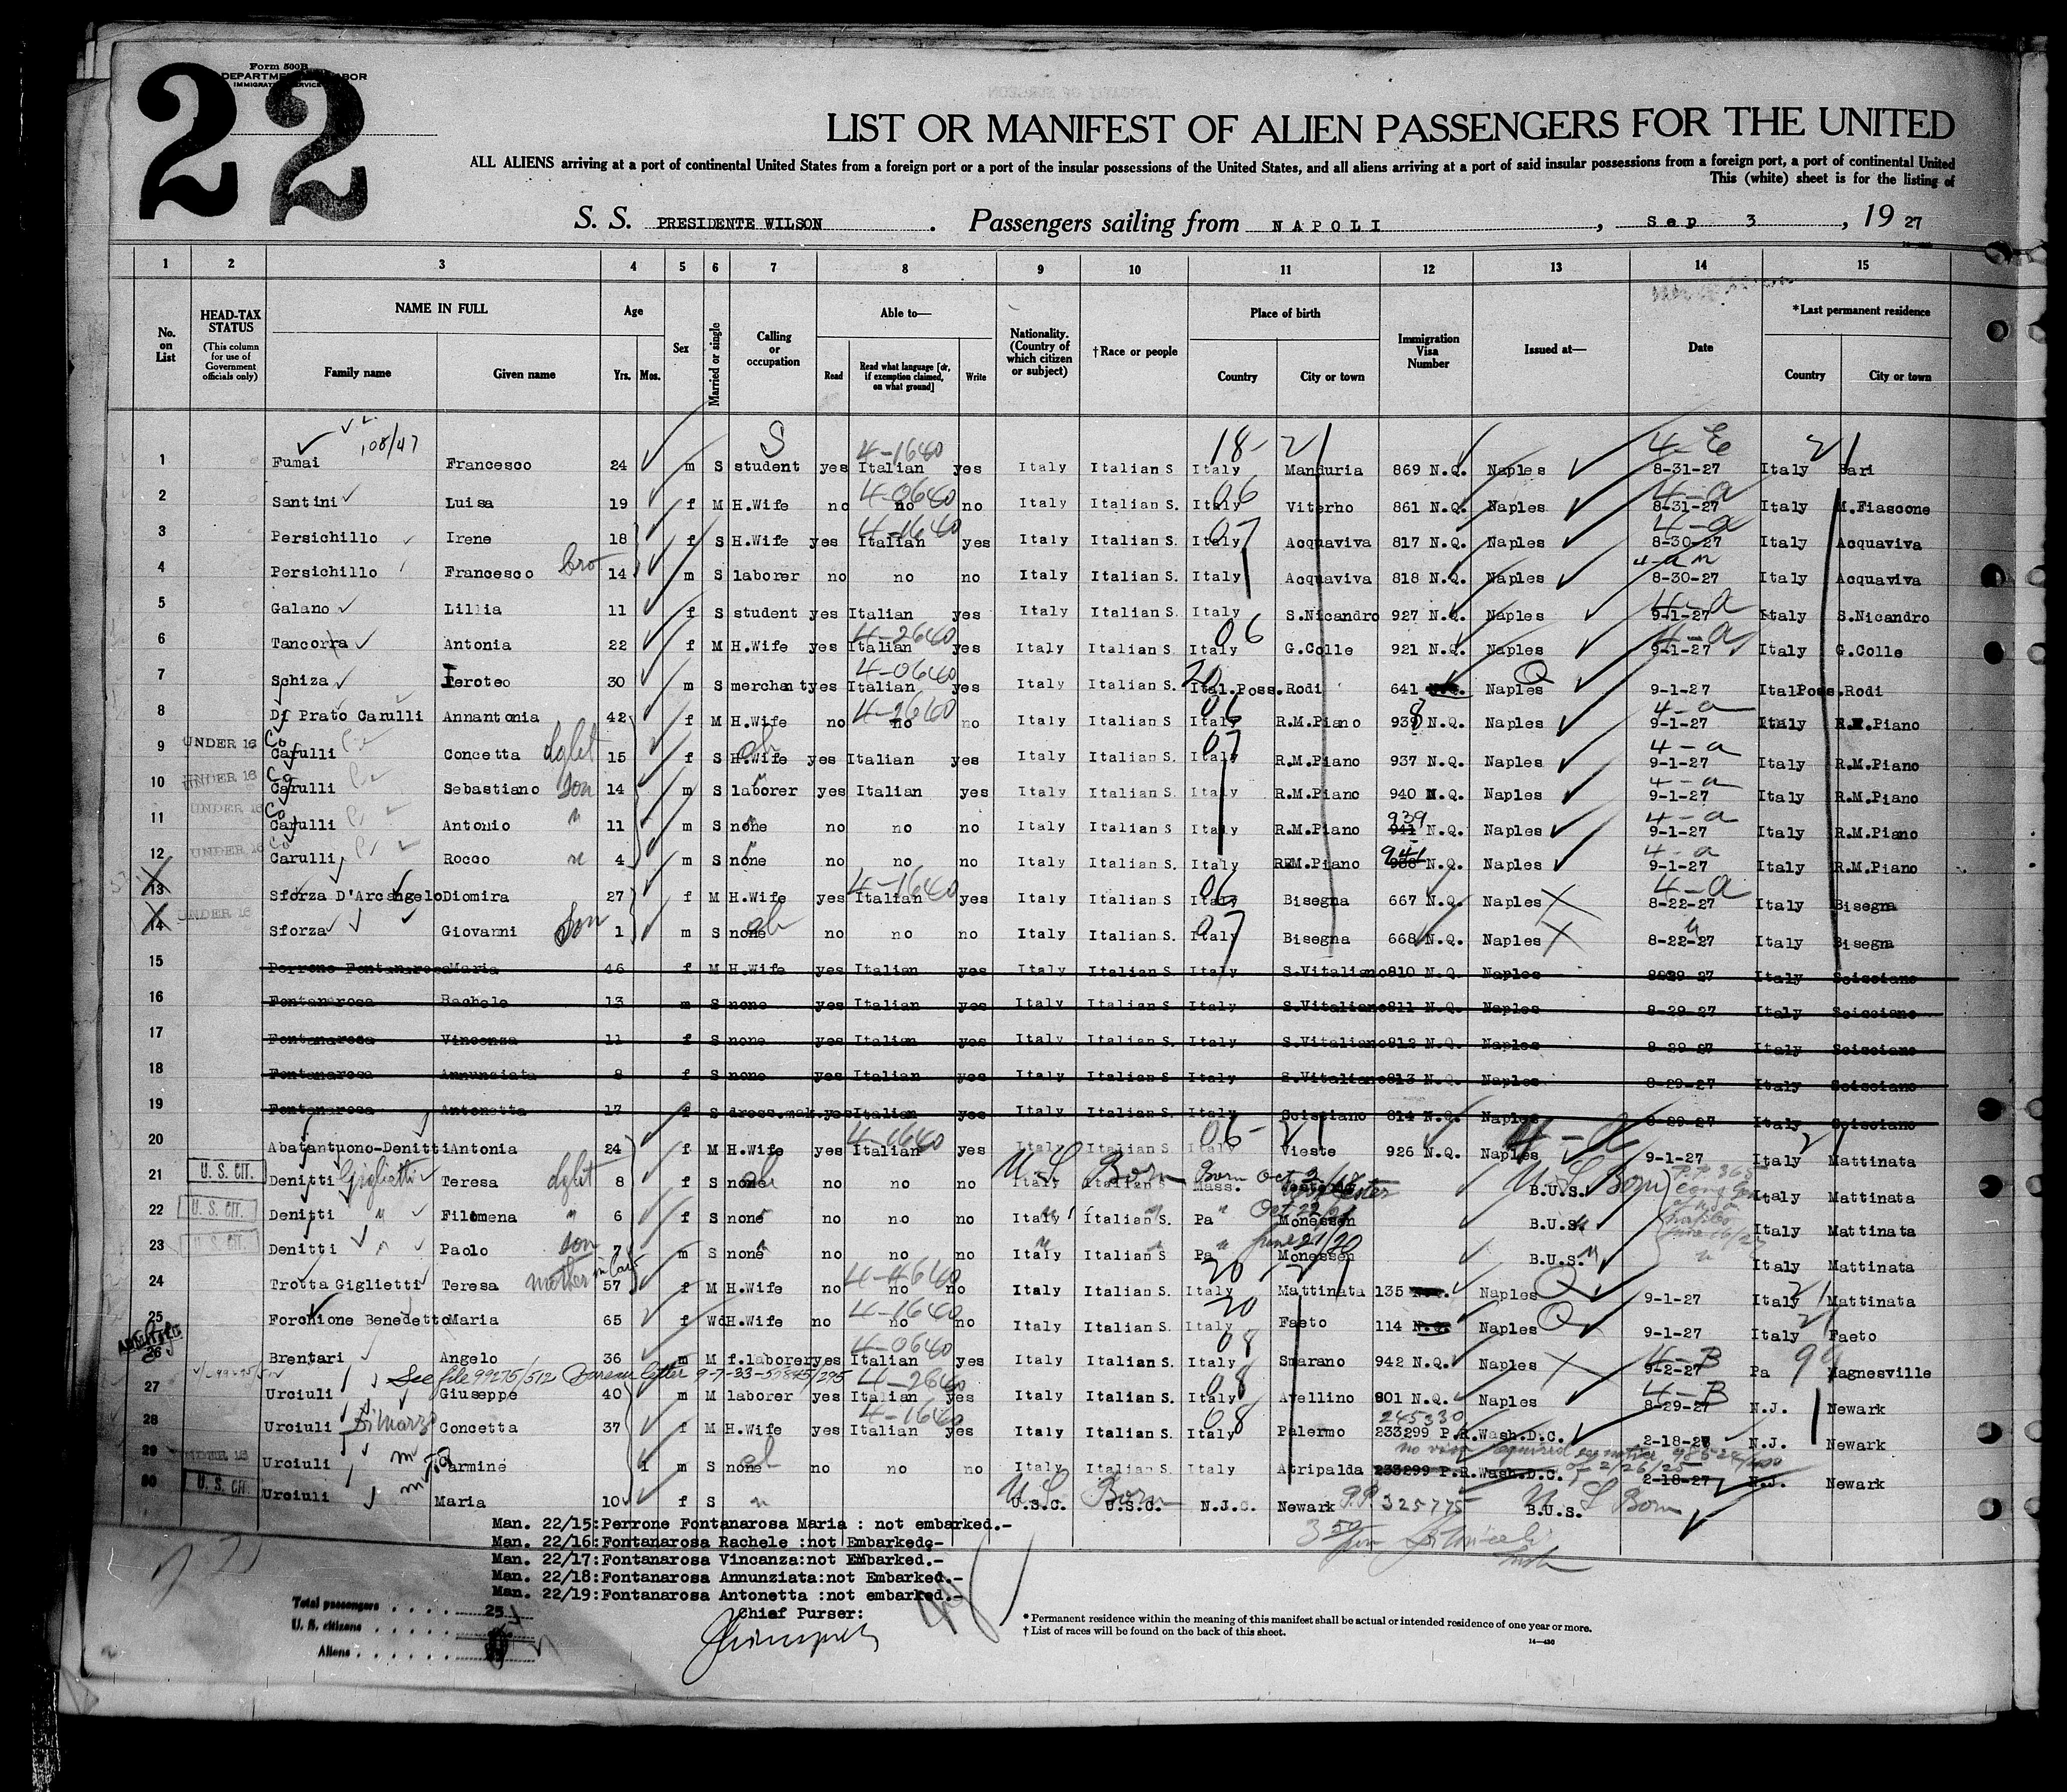 22
Form 500B
DEPARTMENT LABOR
IMMIGRATION SERVICE
LIST OR MANIFEST OF ALIEN PASSENGERS FOR THE UNITED
ALL ALIENS arriving at a port of continental United States from a foreign port or a port of the insular possessions of the United States, and all aliens arriving at a port of said insular possessions from a foreign port, a port of continental United
This (white) sheet is for the listing of
S. S. PRESIDENTE WILSON . Passengers sailing from NAPOLI , Sep 3 , 19 27
1 2 3 4 5 6 7 8 9 10 11 12 13 14 15
No. on List
HEAD-TAX STATUS (This column for use of Government officials only)
NAME IN FULL
Family name Given name
Age
Yrs. Mos.
Sex
Married or single
Calling or occupation
Able to—
Read Read what language [or, if exemption claimed, on what ground] Write
Nationality. (Country of which citizen or subject)
†Race or people
Place of birth
Country City or town
Immigration Visa Number
Issued at—
Date
*Last permanent residence
Country City or town
108/47 S 4-1640 18- 21 4-E 21
1 Fumai Francesco 24 m S student yes Italian yes Italy Italian S Italy Manduria 869 N.Q. Naples 8-31-27 Italy Bari
4-0640 06 4-a
2 Santini Luisa 19 f M H.Wife no no no Italy Italian S. Italy Viterho 861 N.Q. Naples 8-31-27 Italy M.Fiascone
4-1640 07 4-a
3 Persichillo Irene 18 f S H.Wife yes Italian yes Italy Italian S. Italy Acquaviva 817 N.Q. Naples 8-30-27 Italy Acquaviva
4 Persichillo Francesco bro 14 m S laborer no no no Italy Italian S. Italy Acquaviva 818 N.Q. Naples 8-30-27 Italy Acquaviva
4-a
5 Galano Lillia 11 f S student yes Italian yes Italy Italian S. Italy S.Nicandro 927 N.Q. Naples 9-1-27 Italy S.Nicandro
4-2640 06 4-a
6 Tancorra Antonia 22 f M H.Wife yes Italian yes Italy Italian S. Italy G.Colle 921 N.Q. Naples 9-1-27 Italy G.Colle
4-0640 20 Q
7 Schiza Ieroteo 30 m S merchant yes Italian yes Italy Italian S. Ital.Poss. Rodi 641 N.Q. Naples 9-1-27 ItalPoss. Rodi
4-2640 06 4-a
8 Di Prato Carulli Annantonia 42 f M H.Wife no no no Italy Italian S Italy R.M.Piano 938 N.Q. Naples 9-1-27 Italy R.M.Piano
07 4-a
9 UNDER 16 Carulli Concetta dght 15 f S H.Wife yes Italian yes Italy Italian S. Italy R.M.Piano 937 N.Q. Naples 9-1-27 Italy R.M.Piano
4-a
10 UNDER 16 Carulli Sebastiano son 14 m S laborer yes Italian yes Italy Italian S. Italy R.M.Piano 940 N.Q. Naples 9-1-27 Italy R.M.Piano
939 4-a
11 UNDER 16 Carulli Antonio " 11 m S none no no no Italy Italian S. Italy R.M.Piano 941 N.Q. Naples 9-1-27 Italy R.M.Piano
941 4-a
12 UNDER 16 Carulli Rocco 4 m S none no no no Italy Italian S. Italy R.M.Piano N.Q. Naples 9-1-27 Italy R.M.Piano
4-1640 06 4-a
13 Sforza D'Arcangelo Diomira 27 f M H.Wife yes Italian yes Italy Italian S. Italy Bisegna 667 N.Q. Naples 8-22-27 Italy Bisegna
07
14 UNDER 16 Sforza Giovanni son 1 m S none no no no Italy Italian S. Italy Bisegna 668 N.Q. Naples 8-22-27 Italy Bisegna
15 Perrone Fontanarosa Maria 46 f M H.Wife yes Italian yes Italy Italian S Italy S.Vitaliano 810 N.Q. Naples 8-29-27 Italy Scisciano
16 Fontanarosa Rachele 13 m S none yes Italian yes Italy Italian S Italy S.Vitaliano 811 N.Q. Naples 8-29-27 Italy Scisciano
17 Fontanarosa Vincenza 11 f S none yes Italian yes Italy Italian S. Italy S.Vitaliano 812 N.Q. Naples 8-29-27 Italy Scisciano
18 Fontanarosa Annunziata 8 f S none yes Italian yes Italy Italian S Italy S.Vitaliano 813 N.Q. Naples 8-29-27 Italy Scisciano
19 Fontanarosa Antonetta 17 f S dress.mak. yes Italian yes Italy Italian S. Italy Scisciano 814 N.Q. Naples 8-29-27 Italy Scisciano
4-1640 06- 21 4-a 21
20 Abatantuono-Denitti Antonia 24 f M H.Wife yes Italian yes Italy Italian S. Italy Vieste 926 N.Q. Naples 9-1-27 Italy Mattinata
U.S. Born Born Oct 2/18 U S Born P.P. 365
21 U. S. CIT. Denitti Giglietti Teresa dght 8 f S none no no no Italy Italian S Mass. Worcester B.U.S. Italy Mattinata
Oct 22/21
22 U. S. CIT. Denitti " Filomena " 6 f S none no no no Italy Italian S. Pa Monessen B.U.S. Italy Mattinata
June 21/20
23 U. S. CIT. Denitti " Paolo son 7 m S none no no no Italy Italian S Pa Monessen B.U.S. Italy Mattinata
4-4640 20 Q 21
24 Trotta Giglietti Teresa mother in law 57 f M H.Wife no no no Italy Italian S. Italy Mattinata 135 N.Q. Naples 9-1-27 Italy Mattinata
4-1640 20 Q 21
25 Forchione Benedetto Maria 65 f Wd H.Wife no no no Italy Italian S. Italy Faeto 114 N.Q. Naples 9-1-27 Italy Faeto
ADMITTED 4-0640 08 4-B 99
26 Brentari Angelo 36 m M f.laborer yes Italian yes Italy Italian S. Italy Smarano 942 N.Q. Naples 9-2-27 Pa Magnesville
See file 99275/512 Bureau letter 9-7-33-55845/295 4-2640 08 4-B
27 Urciuli Giuseppe 40 m M laborer yes Italian yes Italy Italian S. Italy Avellino 801 N.Q. Naples 8-29-27 N.J. Newark
4-1640 08 245330
28 Urciuli DiMarzo Concetta 37 f M H.Wife yes Italian yes Italy Italian S. Italy Palermo 233299 P.R. Wash.D.C. 2-18-27 N.J. Newark
no visa required
29 UNDER 16 Urciuli Carmine 1 m S none no no no Italy Italian S Italy Atripalda 233299 P.R. Wash.D.C. 2-18-27 N.J. Newark
U S Born P.P. 325775 U S Born
30 U. S. CIT. Urciuli Maria 10 f S " U.S.C. U.S.C. N.J. Newark B.U.S.
Man. 22/15:Perrone Fontanarosa Maria : not embarked.-
Man. 22/16:Fontanarosa Rachele :not Embarked;-
Man. 22/17:Fontanarosa Vincanza:not EMbarked.-
Man. 22/18:Fontanarosa Annunziata:not Embarked.-
Man. 22/19:Fontanarosa Antonetta :not embarked.-
Chief Purser:
Total passengers . . . . 25
U. S. citizens . . . . .
Aliens . . . . . .
* Permanent residence within the meaning of this manifest shall be actual or intended residence of one year or more.
† List of races will be found on the back of this sheet.
14—430